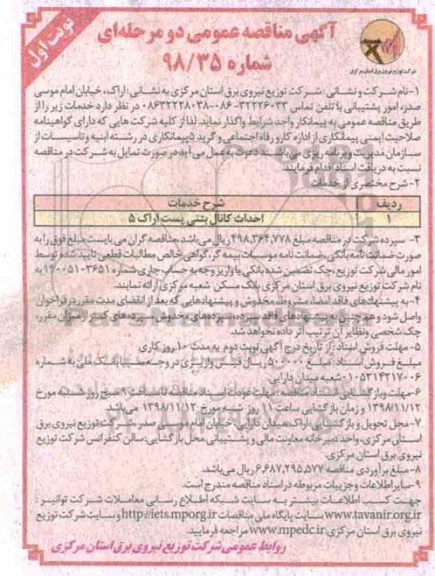 نوبت اول
آگهی مناقصه عمومی دو مرحله‌ای
شماره ۹۸/۳۵
شرکت توزیع نیروی برق استان مرکزی
۱-نام شرکت و نشانی: شرکت توزیع نیروی برق استان مرکزی به نشانی: اراک، خیابان امام موسی
صدر، امور پشتیبانی با تلفن تماس ۳۲۲۲۶۰۳۳-۰۸۶ ۰۸۶۳۲۲۲۸۰۳۸ در نظر دارد خدمات زیر را از
طریق مناقصه عمومی به پیمانکار واجد شرایط واگذار نماید. لذا از کلیه شرکت هایی که دارای گواهینامه
صلاحیت ایمنی پیمانکاری از اداره کار و رفاه اجتماعی و گرید ۵پیمانکاری در رشته ابنیه و تاسیسات از
سازمان مدیریت و برنامه ریزی می‌باشند دعوت به عمل می‌آید در صورت تمایل به شرکت در مناقصه
نسبت به دریافت اسناد اقدام فرمایند.
۲-شرح مختصری از خدمات
ردیف شرح خدمات
۱ احداث کانال بتنی پست اراک ۵
۳- سپرده شرکت در مناقصه مبلغ ۴۹۸,۳۶۴,۷۷۸ ریال می‌باشد، مناقصه گران می‌بایست مبلغ فوق را به
صورت ضمانت نامه بانکی، ضمانت نامه موسسات بیمه گر، گواهی خالص مطالبات قطعی تایید شده توسط
امور مالی شرکت توزیع، چک تضمین شده بانکی یا واریز وجه به حساب جاری شماره ۱۴۰۰۵۱۰۳۶۵۱ به
نام شرکت توزیع نیروی برق استان مرکزی بانک مسکن شعبه مرکزی ارائه نمایند.
۴-به پیشنهادهای فاقد امضاء، مشروط، مخدوش و پیشنهادهایی که بعد از انقضای مدت مقرر در فراخوان
واصل شود و همچنین به پیشنهادهای فاقد سپرده، سپرده‌های مخدوش، سپرده‌های کمتر از میزان مقرر،
چک شخصی و نظایر آن ترتیب اثر داده نخواهد شد.
۵- مهلت فروش اسناد: از تاریخ درج آگهی نوبت دوم به مدت ۱۰ روز کاری
مبلغ فروش اسناد: مبلغ ۵۰۰,۰۰۰ ریال فیش واریزی در وجه سیبا بانک ملی به شماره
۰۱۰۵۳۱۴۲۱۷۰۰۶ شعبه میدان دارایی.
۶-مهلت و بازگشایی اسناد مناقصه: مهلت عودت اسناد مناقصه تا ساعت ۹ صبح روز شنبه مورخ
۱۳۹۸/۱۱/۱۲ و زمان بازگشایی ساعت ۱۱ روز شنبه مورخ ۱۳۹۸/۱۱/۱۲ می‌باشد.
۷- محل تحویل و بازگشایی: اراک، میدان دارایی، خیابان امام موسی صدر شرکت توزیع نیروی برق
استان مرکزی، واحد دبیرخانه معاونت مالی و پشتیبانی، محل بازگشایی: سالن کنفرانس شرکت توزیع
نیروی برق استان مرکزی.
۸-مبلغ برآوردی مناقصه ۶,۶۸۷,۲۹۵,۵۷۷ ریال می‌باشد.
۹-سایر اطلاعات و جزییات مربوطه در اسناد مناقصه مندرج است.
جهت کسب اطلاعات بیشتر به سایت شبکه اطلاع رسانی معاملات شرکت توانیر:
www.tavanir.org.ir سایت پایگاه ملی مناقصات http://iets.mporg.ir و سایت شرکت توزیع
نیروی برق استان مرکزی: www.mpedc.ir مراجعه فرمایید.
روابط عمومی شرکت توزیع نیروی برق استان مرکزی